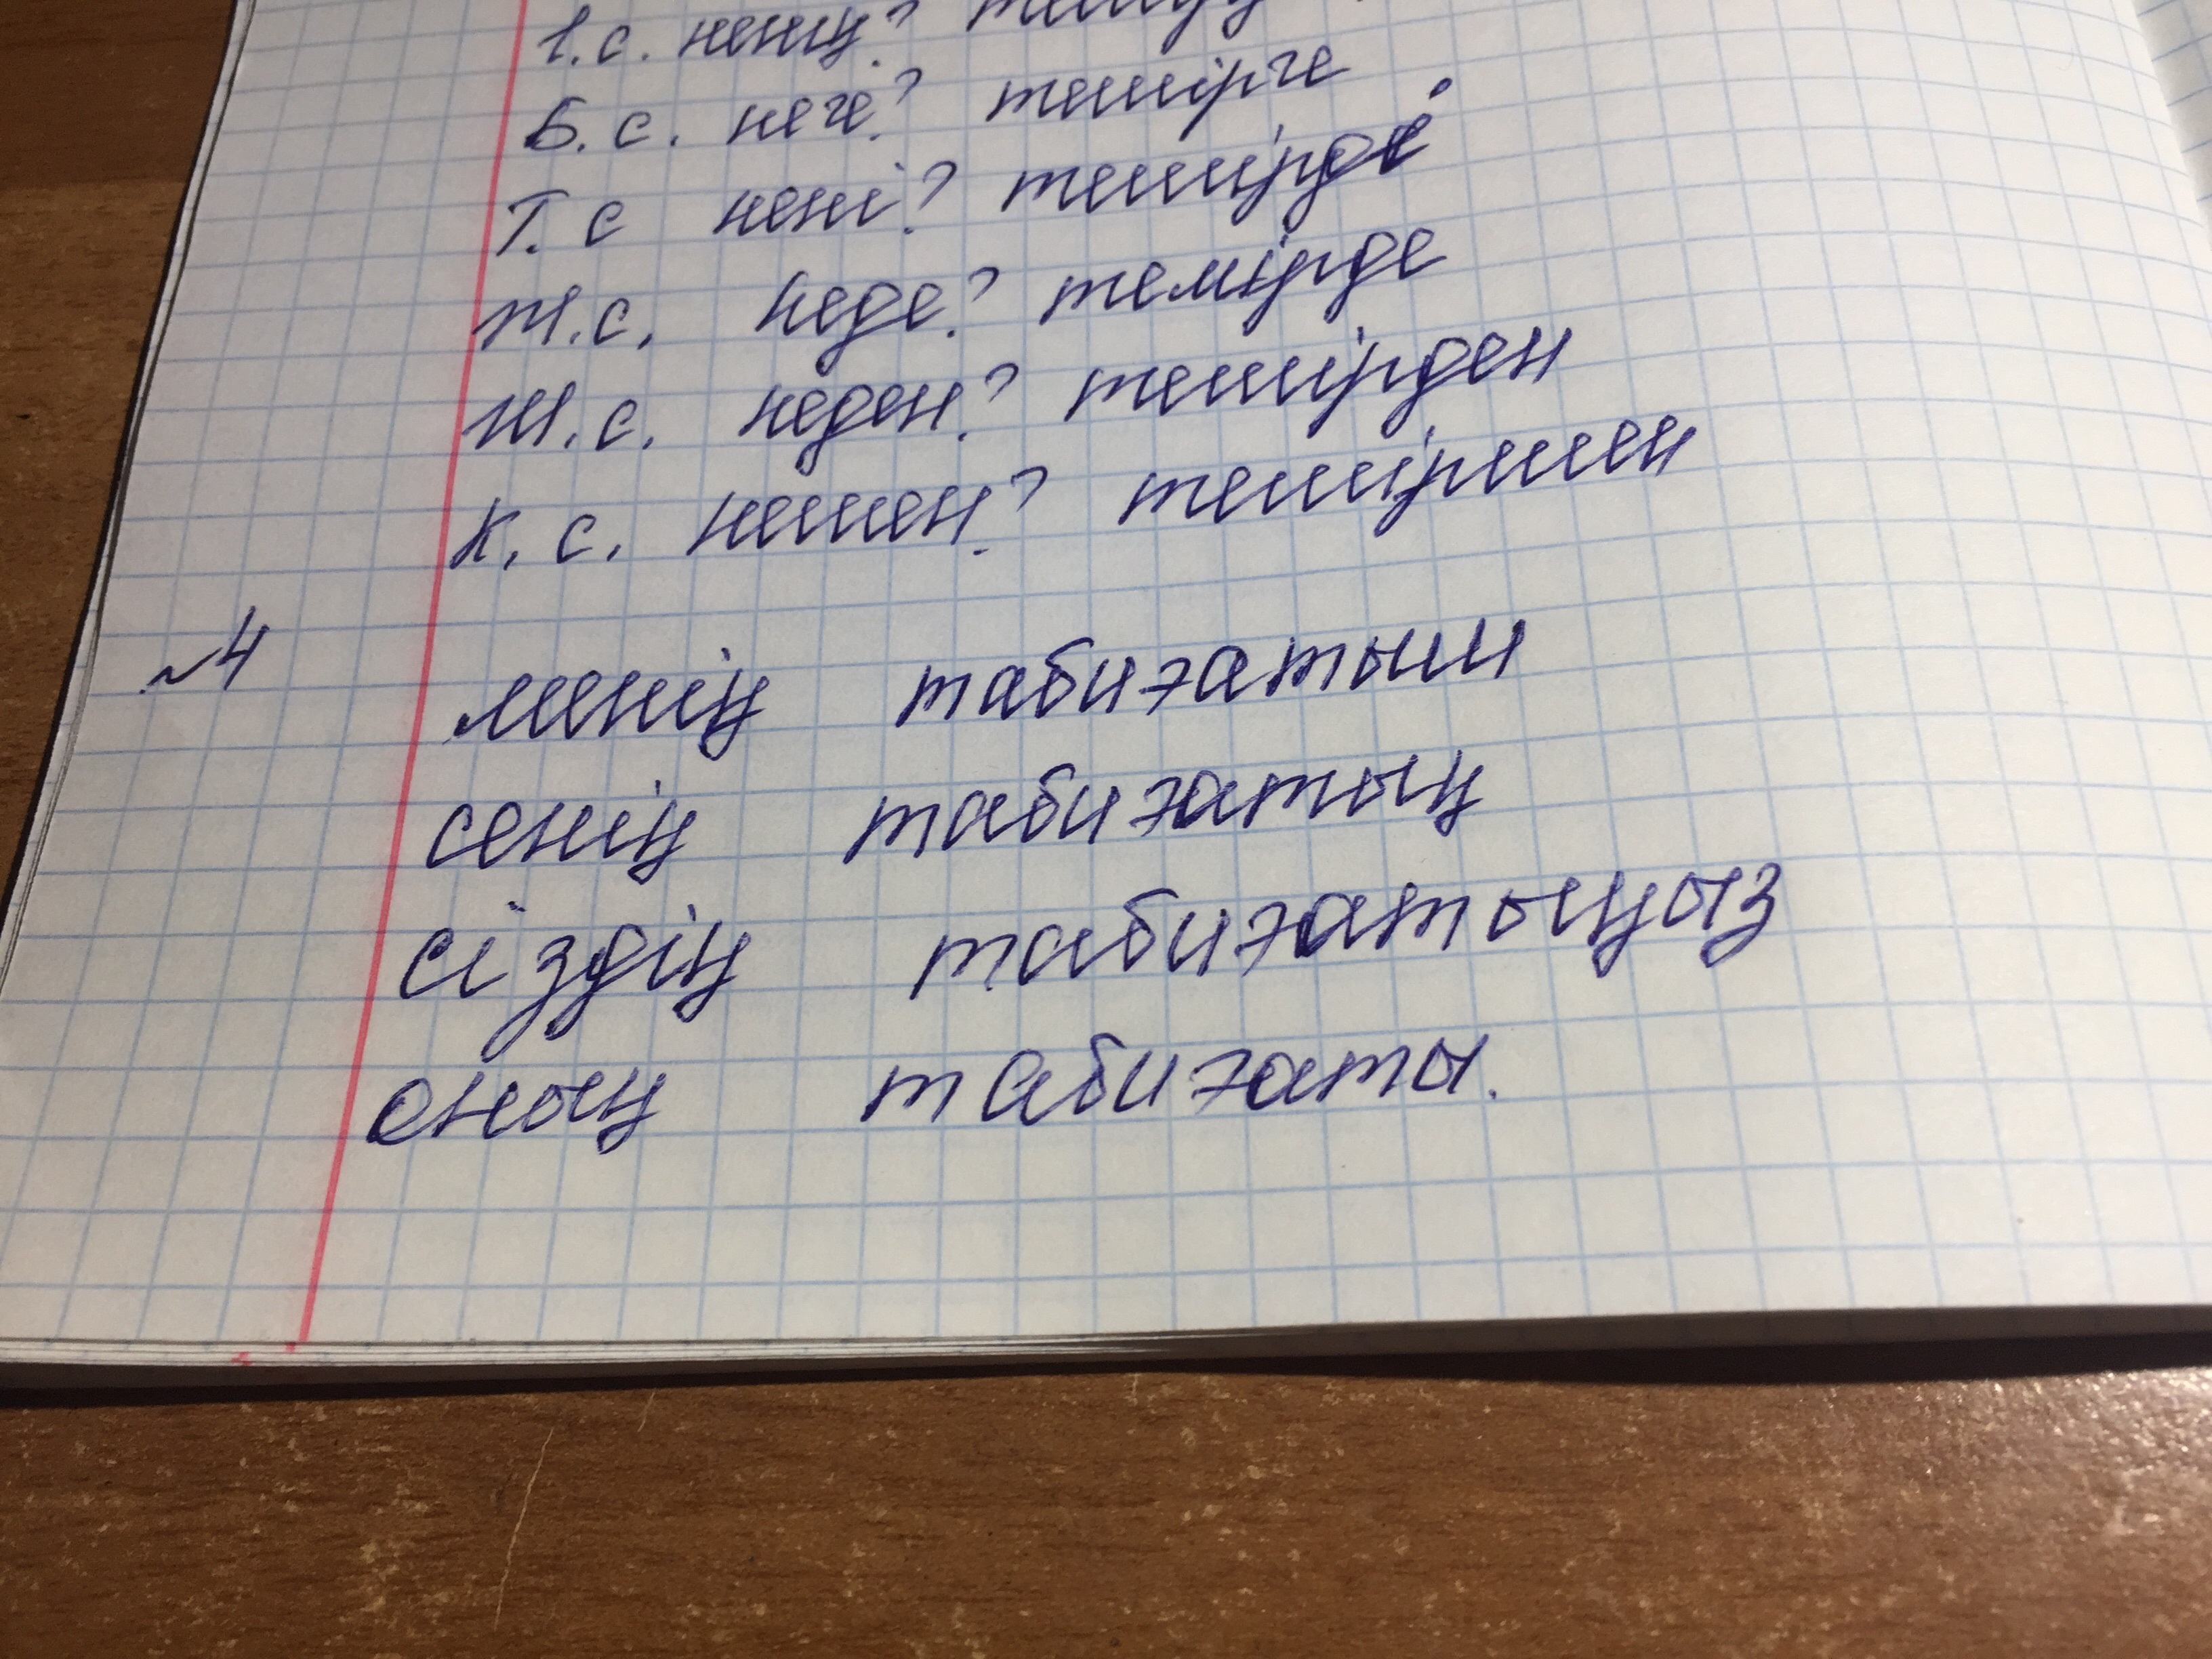 І.с. ненің?
Б.с. неге? темірге
Т.с нені? темірді
Ж.с. неде? темірде
Ш.с. неден? темірден
К.с. немен? темірмен
№4
менің табиғатым
сенің табиғатың
сіздің табиғатыңыз
оның табиғаты.